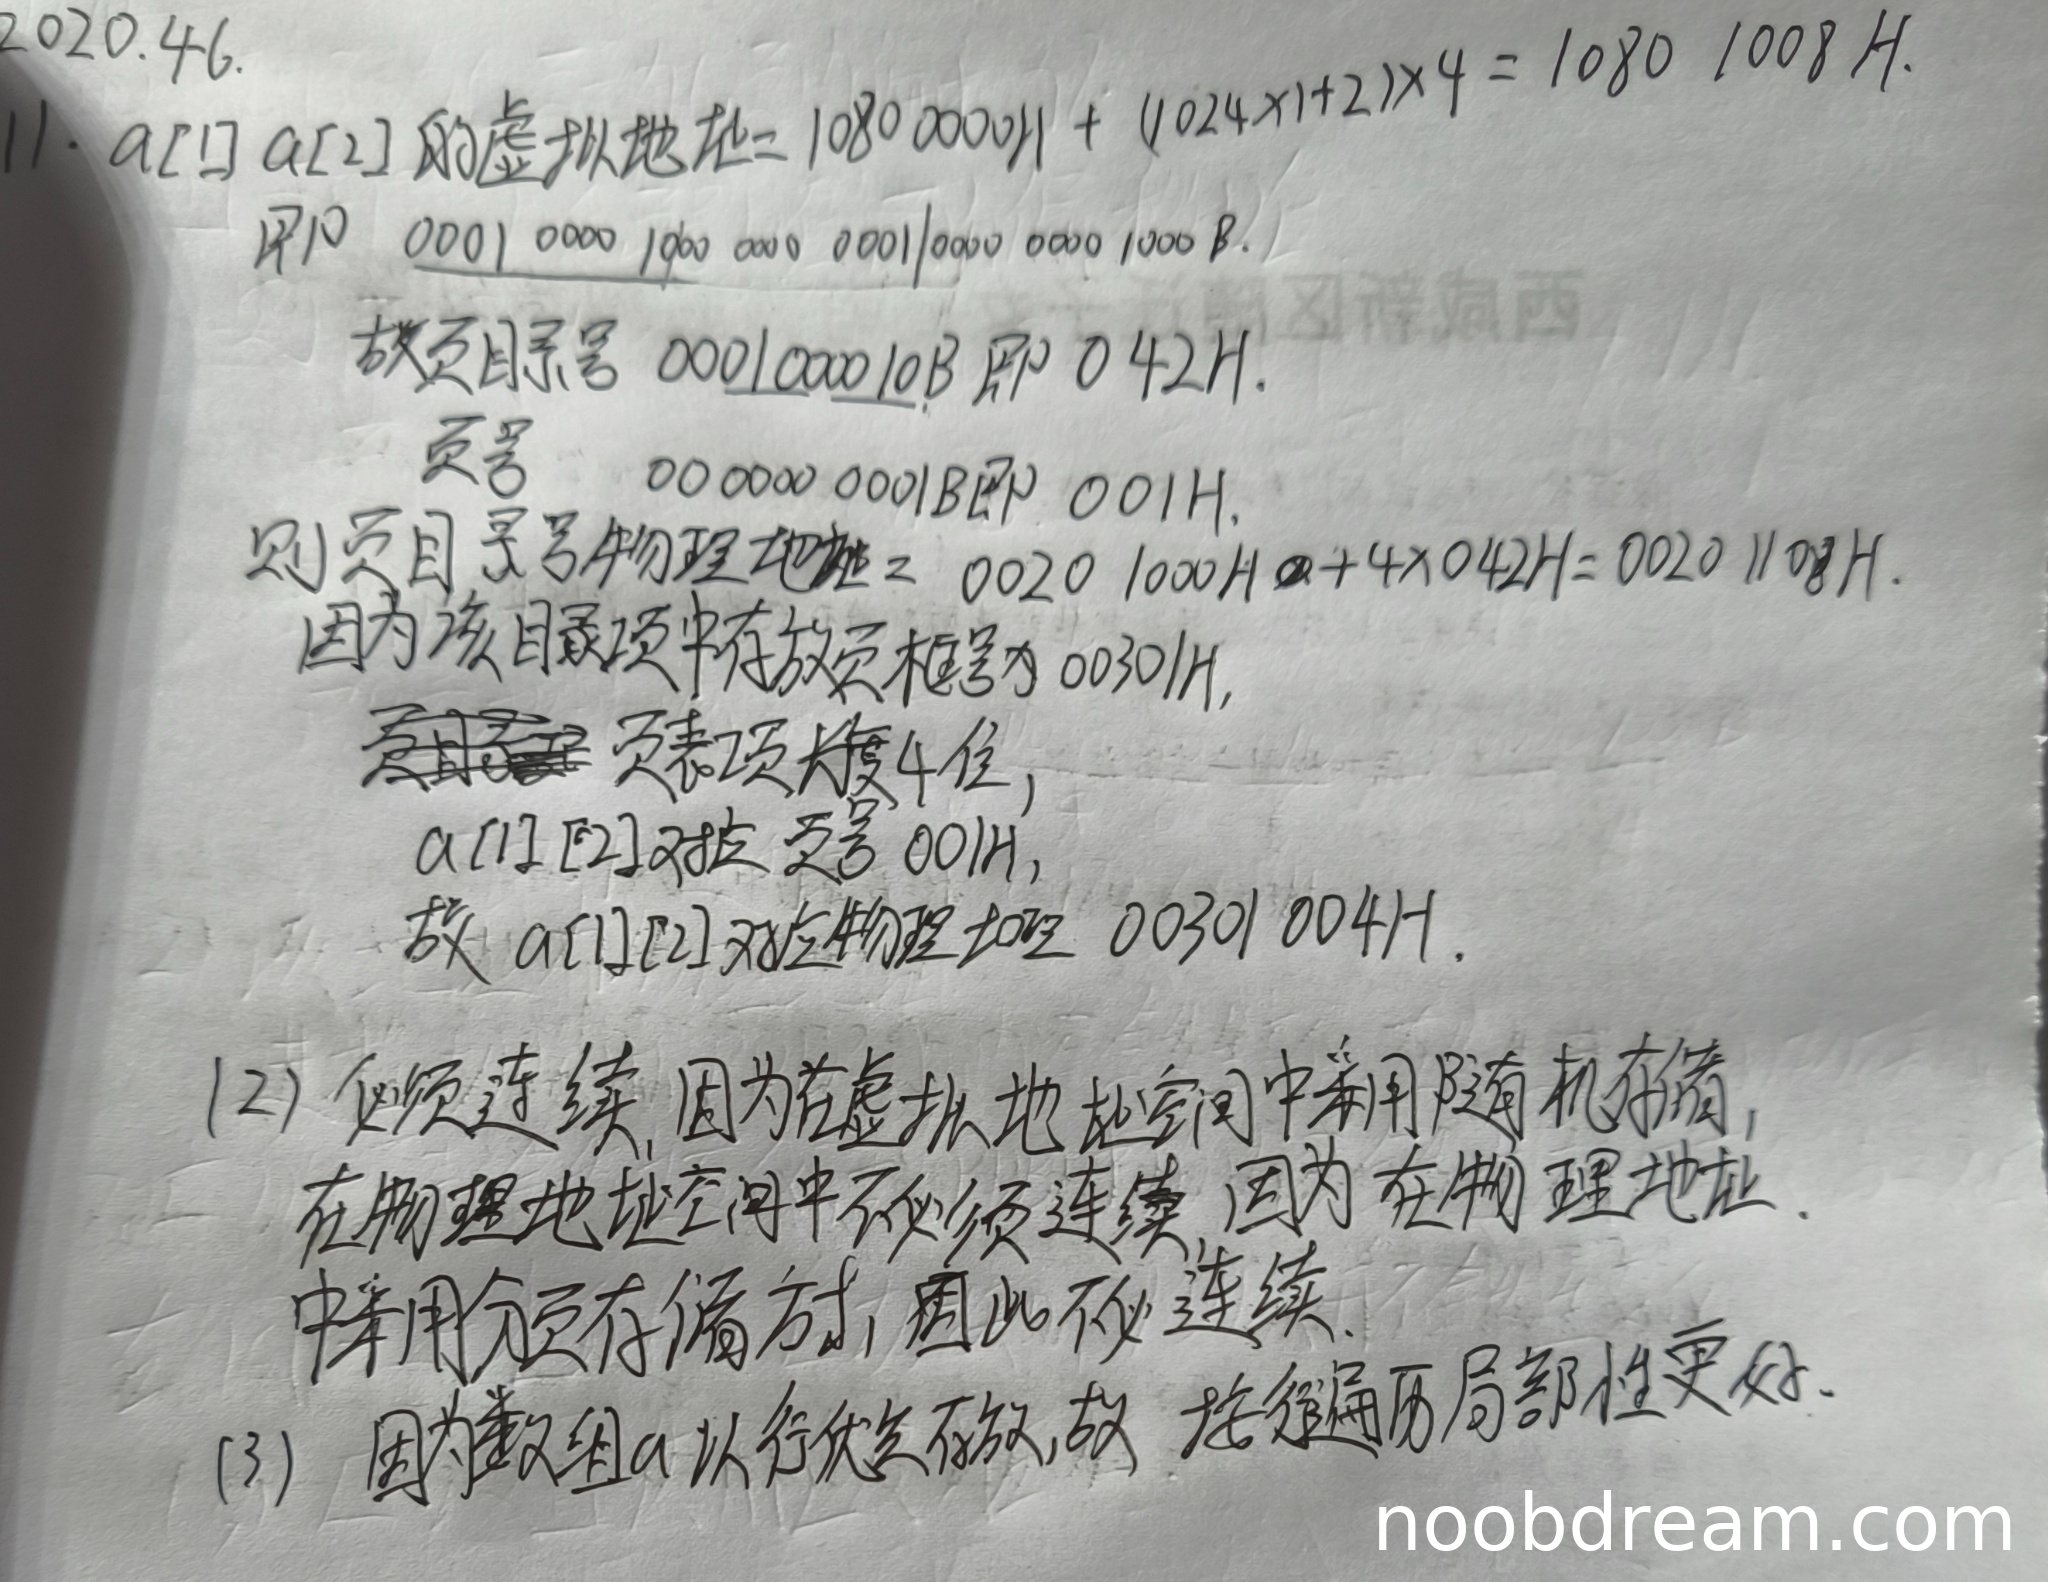 2020.46.
11. a[1] a[2] 的虚拟地址= 1080 0000H + (1024×1+2)×4 = 1080 1008 H.
即 0001 0000 1000 0000 0001 0000 0000 1000 B.
故页目录号 0001000010B 即 042H.
页号 00 0000 0001B即 001H.
则页目录号物理地址= 0020 1000H +4×042H= 0020 1108H.
因为该目录项中存放页框号为 00301H,
页表项长度4位,
a[1][2]对应页号 001H,
故 a[1][2]对应物理地址 00301 004H.
西咸新区
(2) 必须连续,因为在虚拟地址空间中采用随机存储,
在物理地址空间中不必须连续,因为在物理地址.
中采用分页存储方式,因此不必连续.
(3) 因为数组a以行优先存放,故 按行遍历局部性更好.
noobdream.com